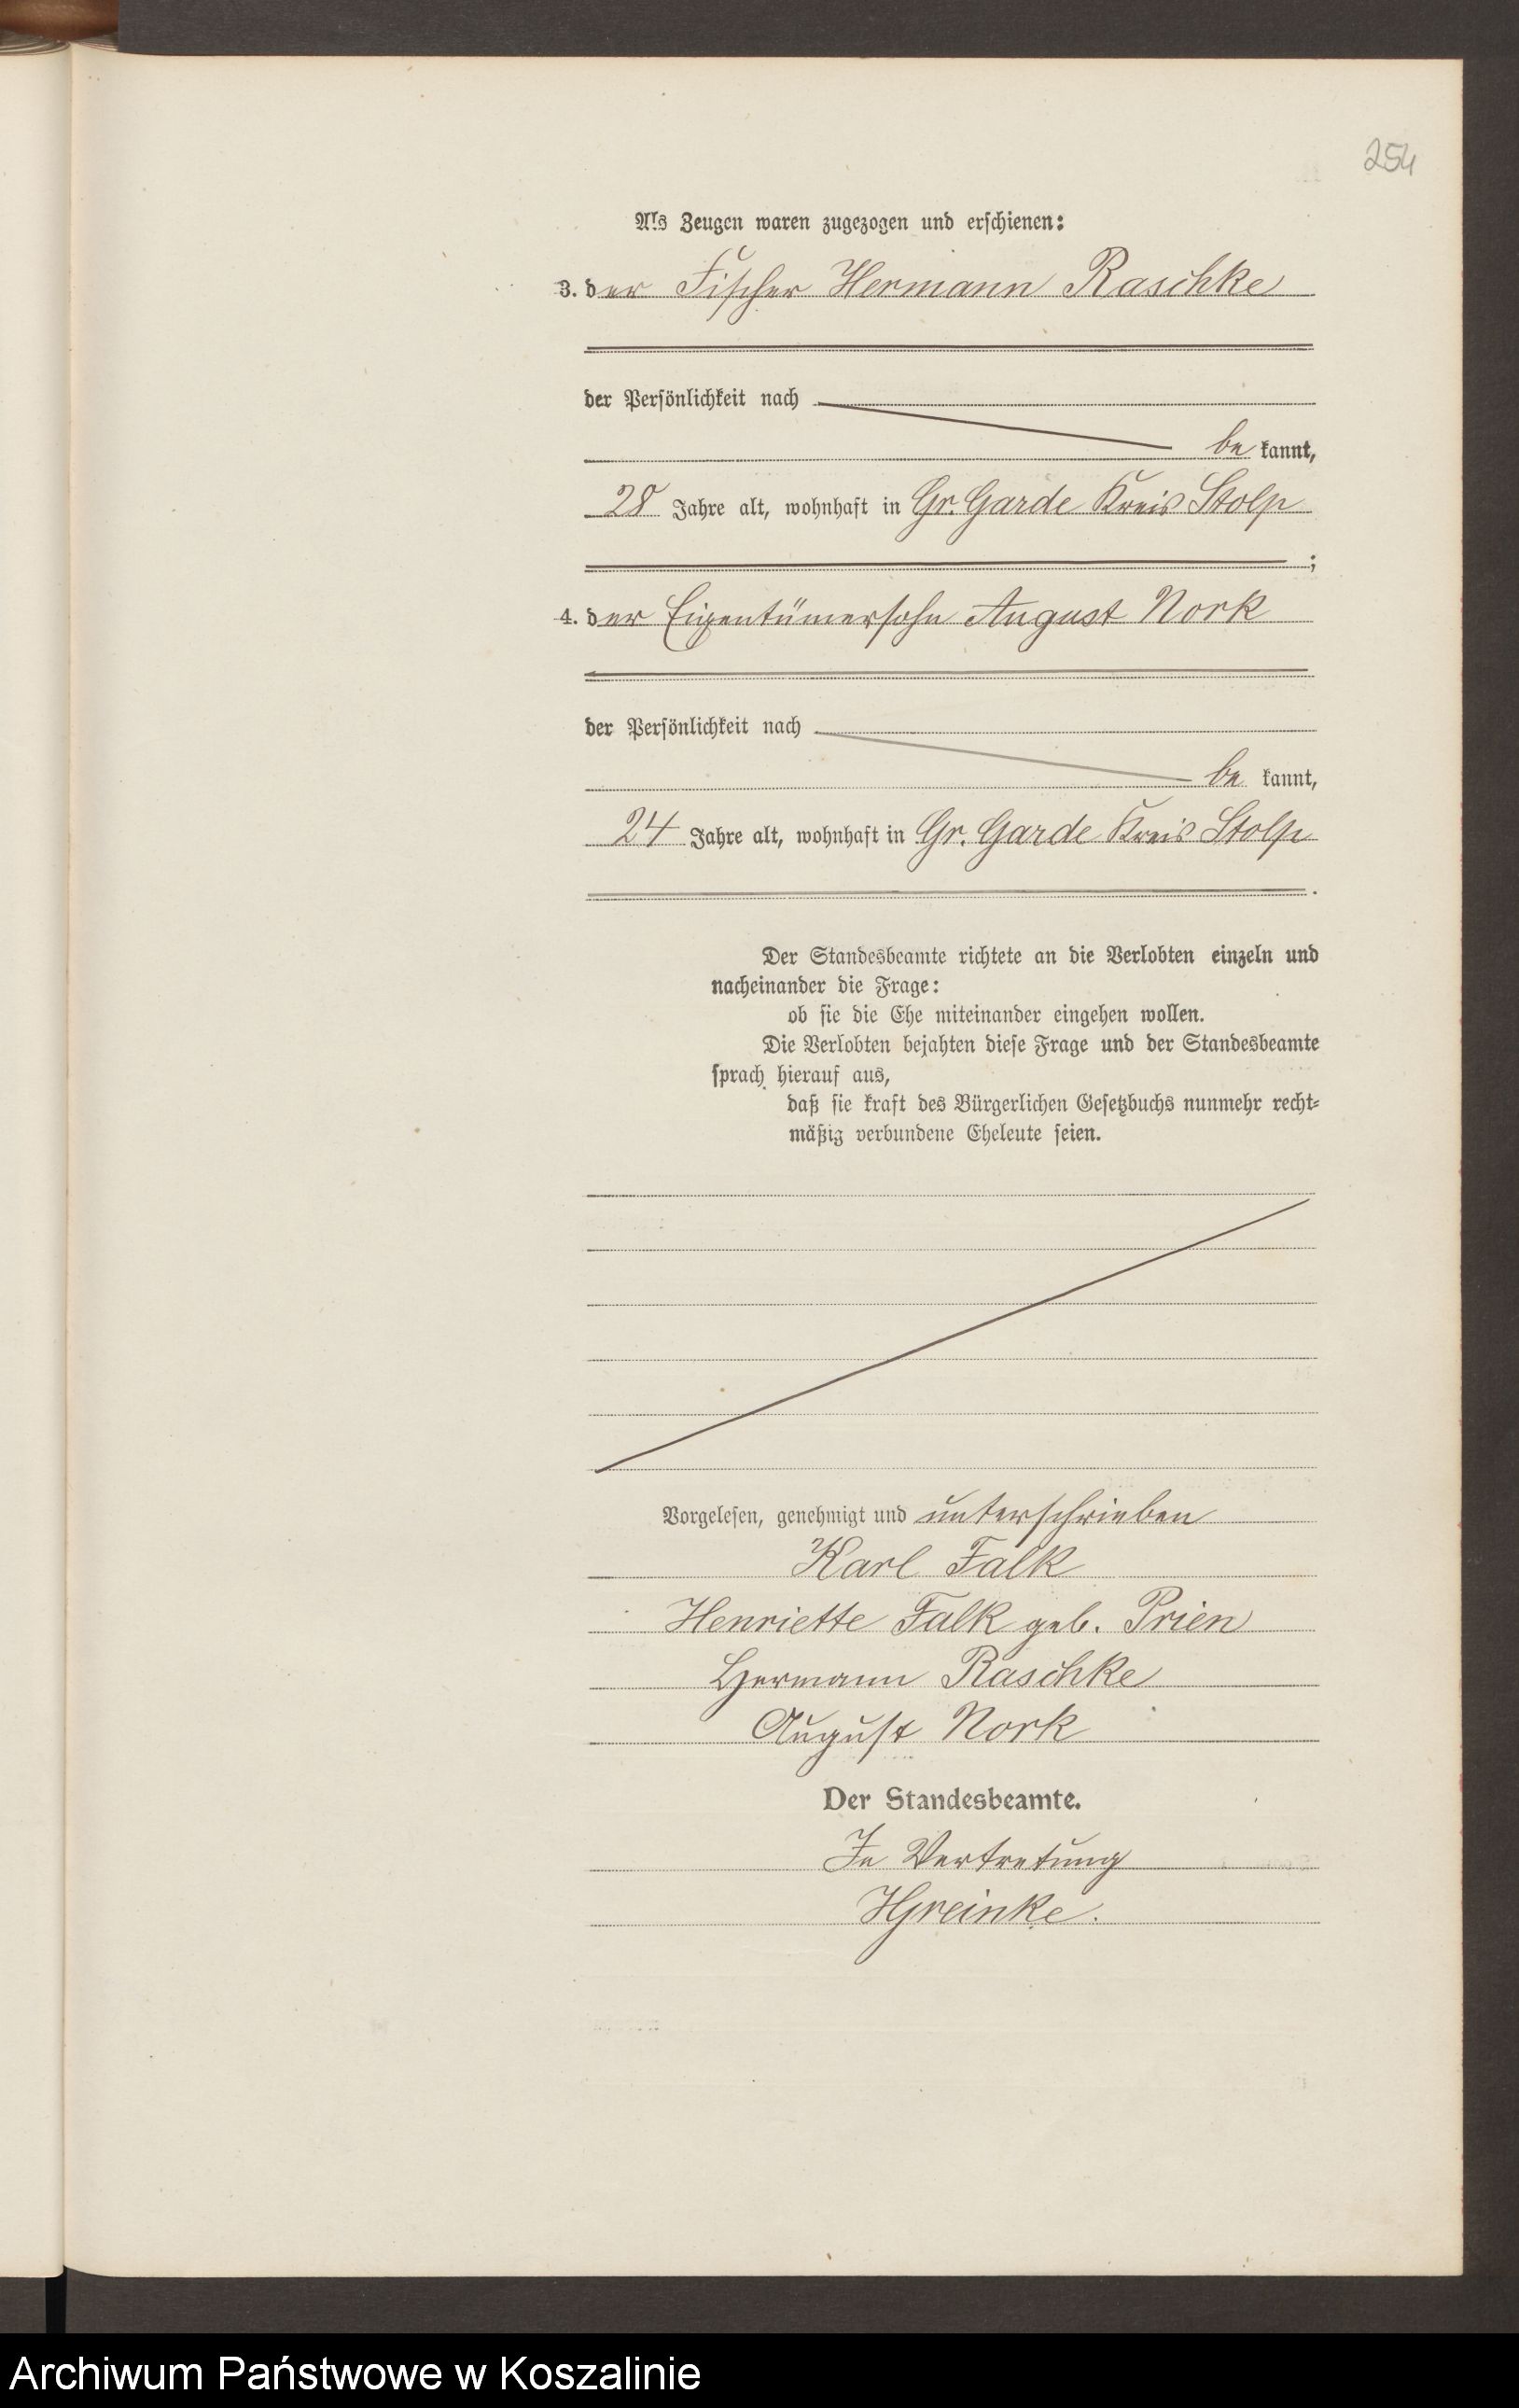 254
Als Zeugen waren zugezogen und erschienen:
3. der Fischer Hermann Raschke
der Persönlichkeit nach
be kannt,
28 Jahre alt, wohnhaft in Gr. Garde Kreis Stolp
;
4. der Eigentümersohn August Nork
der Persönlichkeit nach
be kannt,
24 Jahre alt, wohnhaft in Gr. Garde Kreis Stolp
.
Der Standesbeamte richtete an die Verlobten einzeln und
nacheinander die Frage:
ob sie die Ehe miteinander eingehen wollen.
Die Verlobten bejahten diese Frage und der Standesbeamte
sprach hierauf aus,
daß sie kraft des Bürgerlichen Gesetzbuchs nunmehr recht-
mäßig verbundene Eheleute seien.
Vorgelesen, genehmigt und unterschrieben
Karl Falk
Henriette Falk geb. Prien
Hermann Raschke
August Nork
Der Standesbeamte.
In Vertretung
HGreinke.
Archiwum Państwowe w Koszalinie